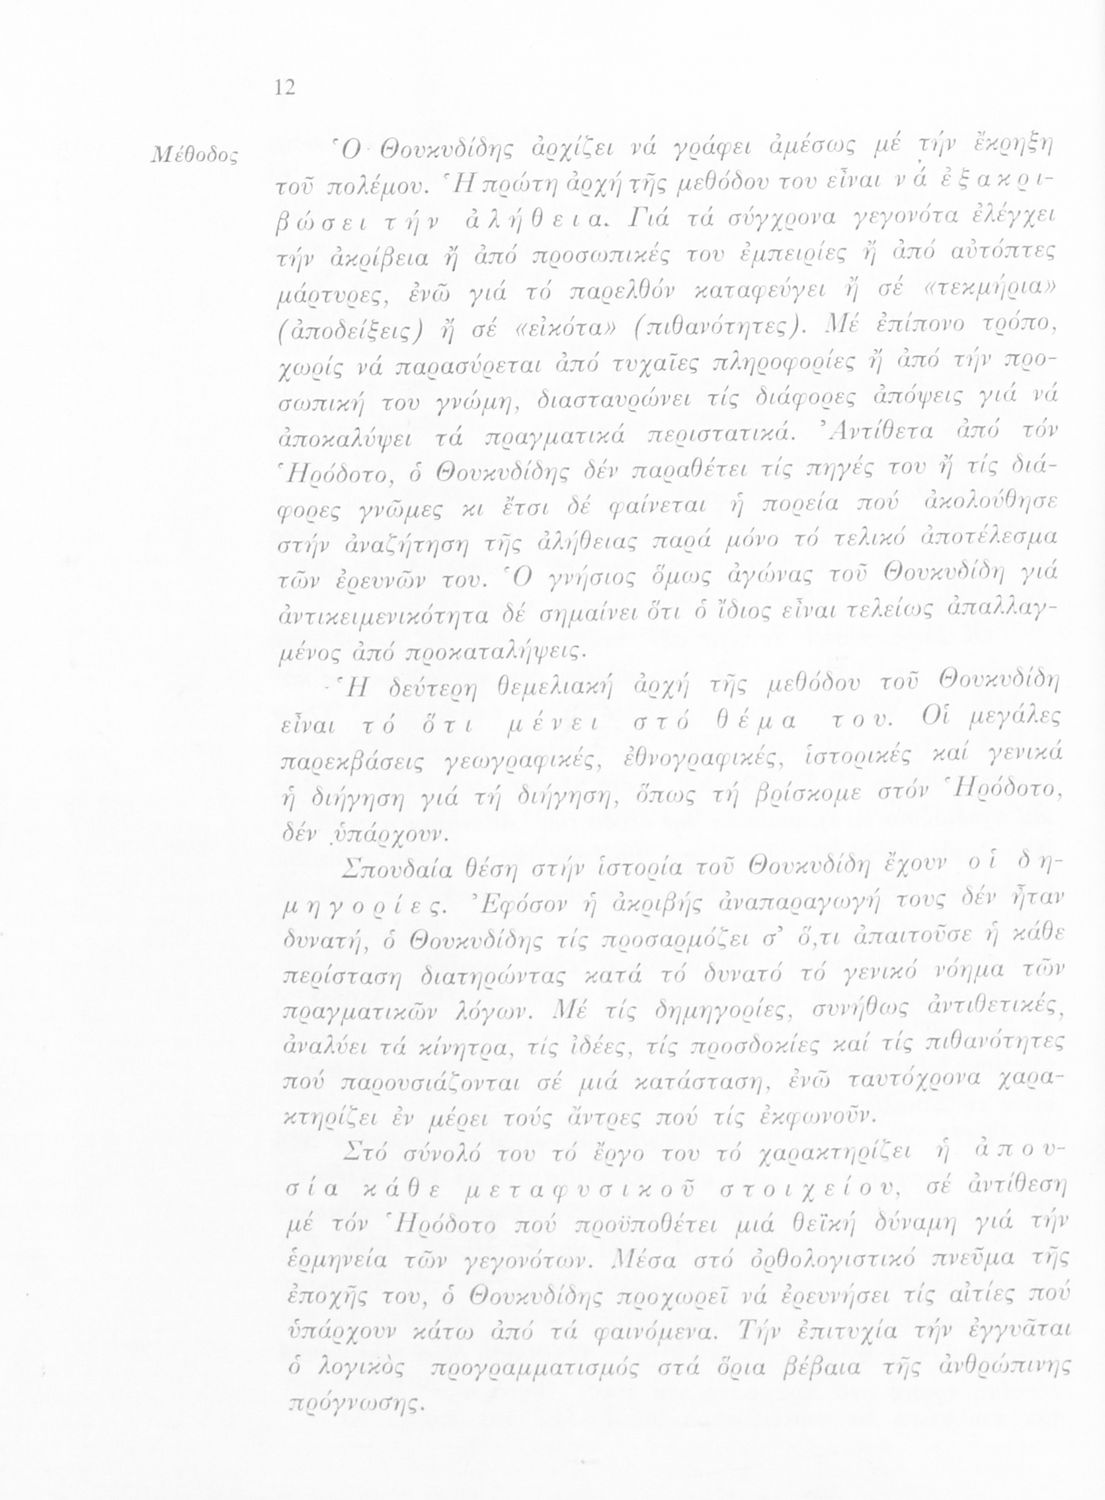 12
Μέθοδος
Ὁ Θουκυδίδης ἀρχίζει νά γράφει ἀμέσως μέ τήν ἔκρηξη
τοῦ πολέμου. Ἡ πρώτη ἀρχή τῆς μεθόδου του εἶναι νά ἐξακρι-
βώσει τήν ἀλήθεια. Γιά τά σύγχρονα γεγονότα ἐλέγχει
τήν ἀκρίβεια ἤ ἀπό προσωπικές του ἐμπειρίες ἤ ἀπό αὐτόπτες
μάρτυρες, ἐνῶ γιά τό παρελθόν καταφεύγει ἤ σέ «τεκμήρια»
(ἀποδείξεις) ἤ σέ «εἰκότα» (πιθανότητες). Μέ ἐπίπονο τρόπο,
χωρίς νά παρασύρεται ἀπό τυχαῖες πληροφορίες ἤ ἀπό τήν προ-
σωπική του γνώμη, διασταυρώνει τίς διάφορες ἀπόψεις γιά νά
ἀποκαλύψει τά πραγματικά περιστατικά. Ἀντίθετα ἀπό τόν
Ἡρόδοτο, ὁ Θουκυδίδης δέν παραθέτει τίς πηγές του ἤ τίς διά-
φορες γνῶμες κι ἔτσι δέ φαίνεται ἡ πορεία πού ἀκολούθησε
στήν ἀναζήτηση τῆς ἀλήθειας παρά μόνο τό τελικό ἀποτέλεσμα
τῶν ἐρευνῶν του. Ὁ γνήσιος ὅμως ἀγώνας τοῦ Θουκυδίδη γιά
ἀντικειμενικότητα δέ σημαίνει ὅτι ὁ ἴδιος εἶναι τελείως ἀπαλλαγ-
μένος ἀπό προκαταλήψεις.
Ἡ δεύτερη θεμελιακή ἀρχή τῆς μεθόδου τοῦ Θουκυδίδη
εἶναι τό ὅτι μένει στό θέμα του. Οἱ μεγάλες
παρεκβάσεις γεωγραφικές, ἐθνογραφικές, ἱστορικές καί γενικά
ἡ διήγηση γιά τή διήγηση, ὅπως τή βρίσκομε στόν Ἡρόδοτο,
δέν ὑπάρχουν.
Σπουδαία θέση στήν ἱστορία τοῦ Θουκυδίδη ἔχουν οἱ δη-
μηγορίες. Ἐφόσον ἡ ἀκριβής ἀναπαραγωγή τους δέν ἦταν
δυνατή, ὁ Θουκυδίδης τίς προσαρμόζει σ' ὅ,τι ἀπαιτοῦσε ἡ κάθε
περίσταση διατηρώντας κατά τό δυνατό τό γενικό νόημα τῶν
πραγματικῶν λόγων. Μέ τίς δημηγορίες, συνήθως ἀντιθετικές,
ἀναλύει τά κίνητρα, τίς ἰδέες, τίς προσδοκίες καί τίς πιθανότητες
πού παρουσιάζονται σέ μιά κατάσταση, ἐνῶ ταυτόχρονα χαρα-
κτηρίζει ἐν μέρει τούς ἄντρες πού τίς ἐκφωνοῦν.
Στό σύνολό του τό ἔργο του τό χαρακτηρίζει ἡ ἀπου-
σία κάθε μεταφυσικοῦ στοιχείου, σέ ἀντίθεση
μέ τόν Ἡρόδοτο πού προϋποθέτει μιά θεϊκή δύναμη γιά τήν
ἑρμηνεία τῶν γεγονότων. Μέσα στό ὀρθολογιστικό πνεῦμα τῆς
ἐποχῆς του, ὁ Θουκυδίδης προχωρεῖ νά ἐρευνήσει τίς αἰτίες πού
ὑπάρχουν κάτω ἀπό τά φαινόμενα. Τήν ἐπιτυχία τήν ἐγγυᾶται
ὁ λογικὸς προγραμματισμός στά ὅρια βέβαια τῆς ἀνθρώπινης
πρόγνωσης.